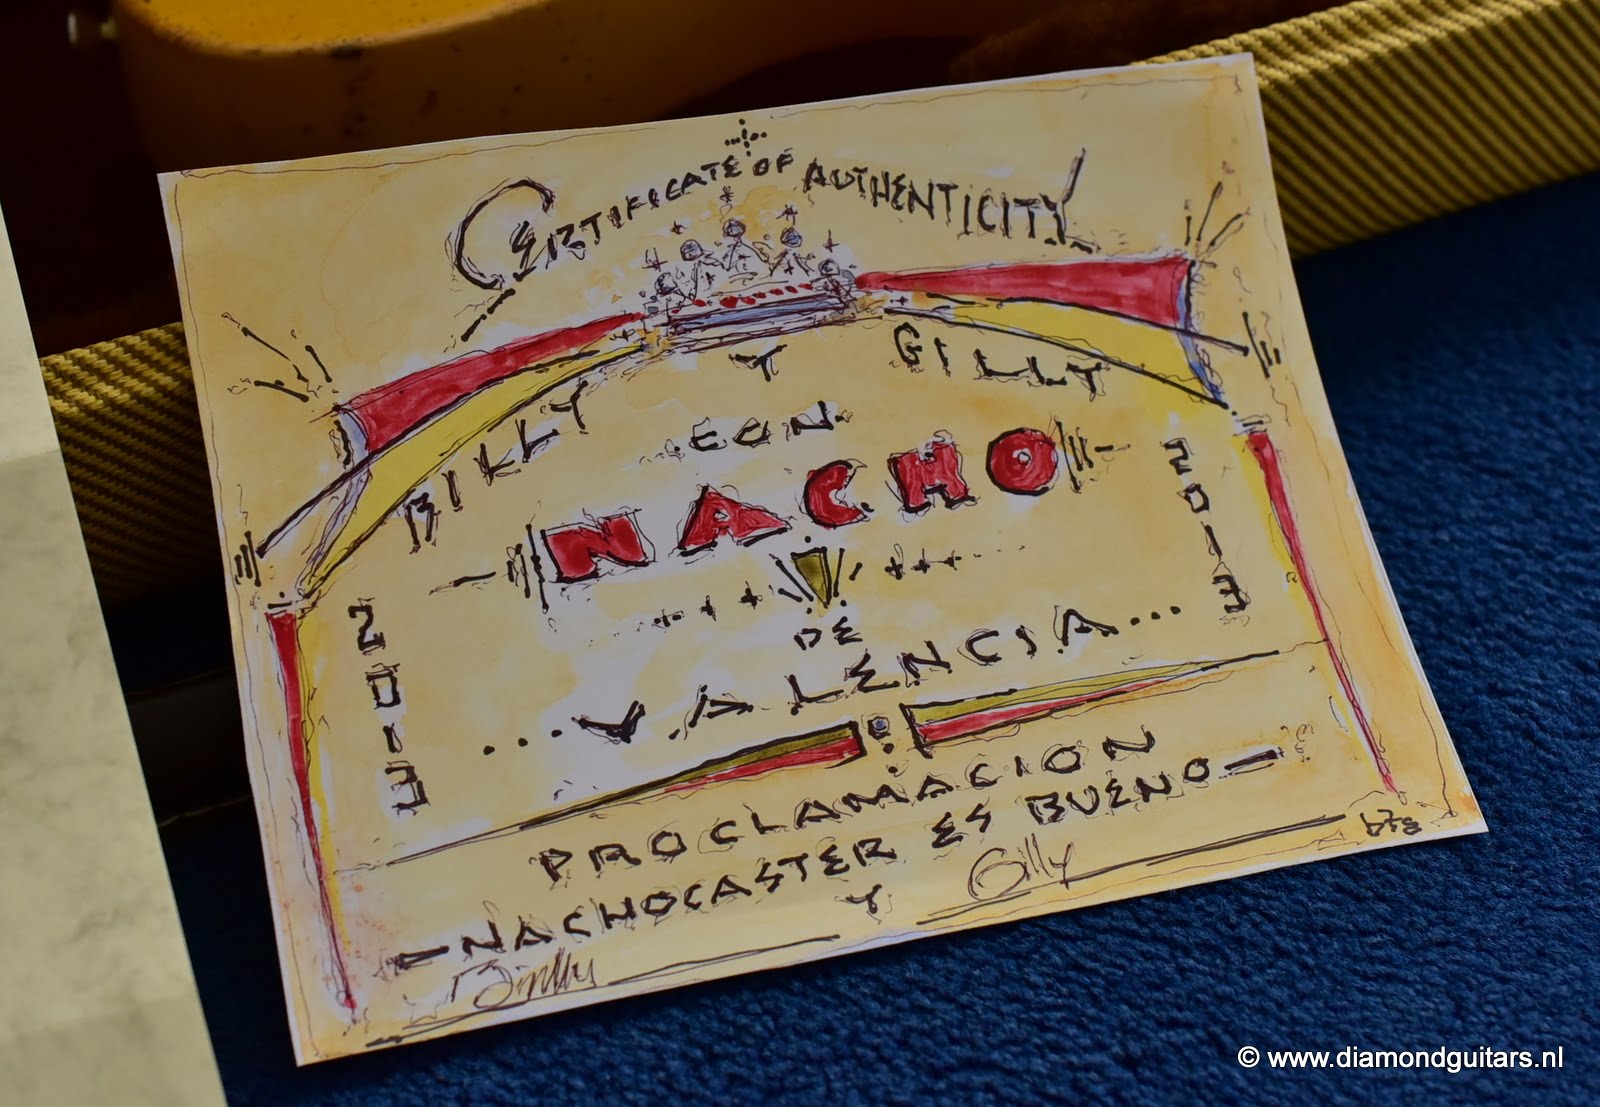 CERTIFICATE OF AUTHENTICITY
BILLY Y GILLY
CON
NACHO
DE
...VALENCIA...
PROCLAMACION
—NACHOCASTER ES BUENO—
Billy Y Gilly
bfg
© www.diamondguitars.nl